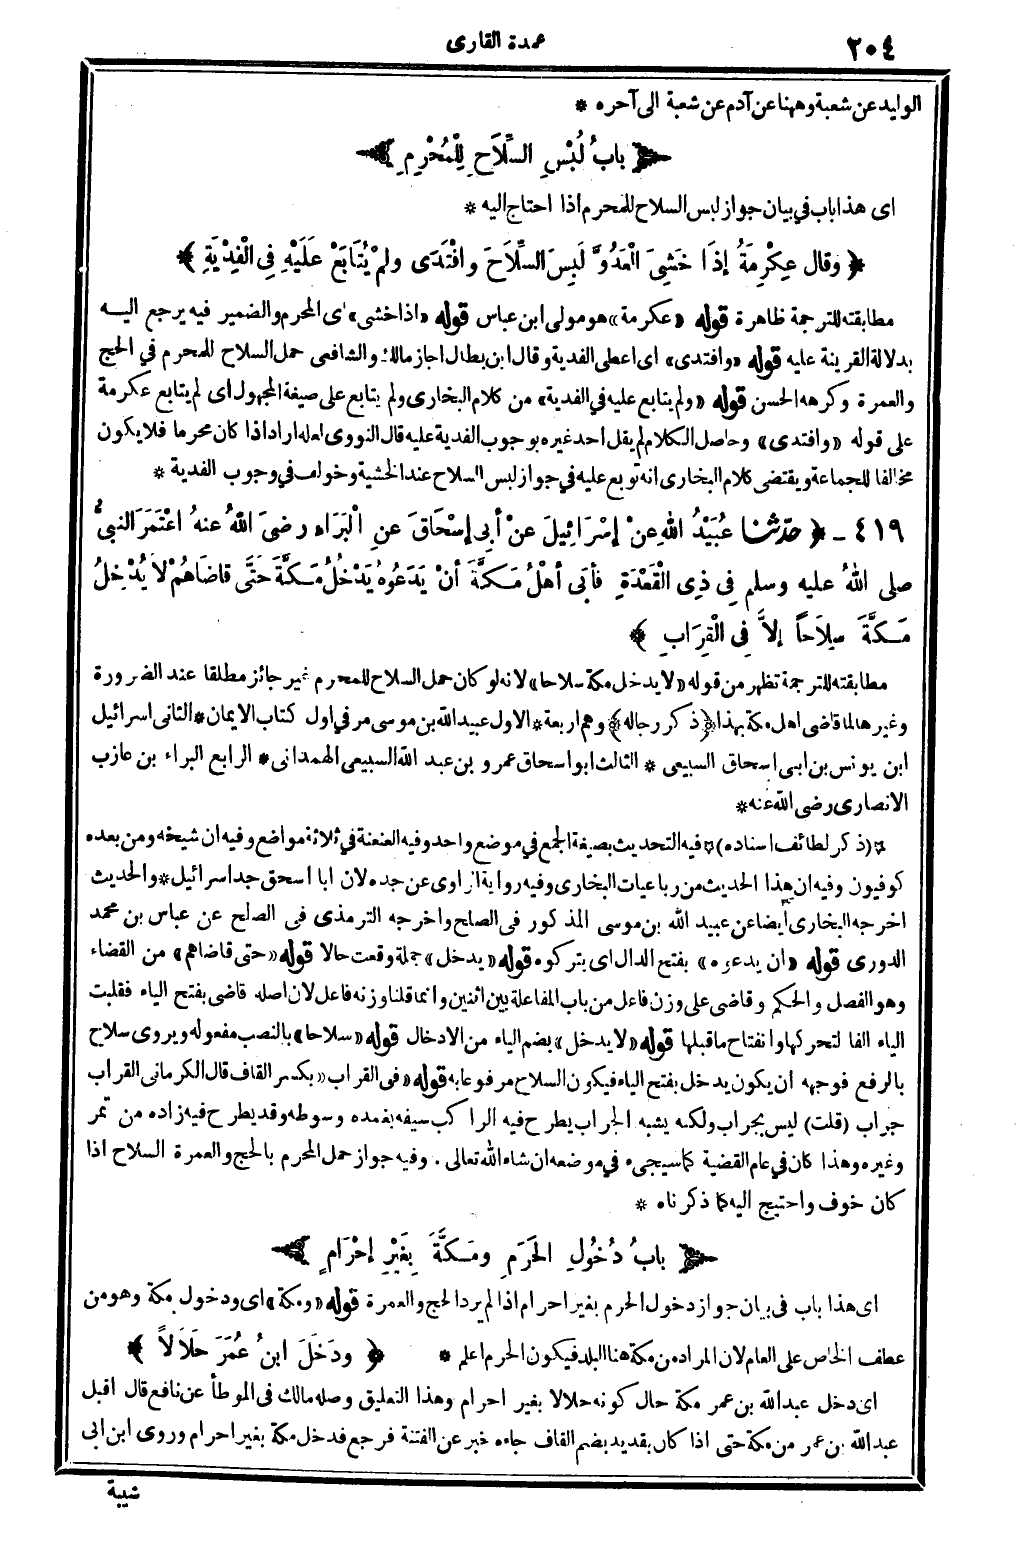 ٢٠٤
عمدة القارى
الوليد عن شعبة وههنا عن آدم عن شعبة الى آخره *
باب لُبْسِ السِّلَاحِ لِلْمُحْرِمِ
اى هذا باب في بيان جواز لبس السلاح للمحرم اذا احتاج اليه *
﴿ وقال عِكْرِمَةُ إذَا خَشِيَ الْعَدُوَّ لَبِسَ السِّلَاحَ وافْتَدَى ولمْ يُتَابَعْ عَلَيْهِ فِى الْفِدْيَةِ ﴾
مطابقته للترجمة ظاهرة قوله «عكرمة» هو مولى ابن عباس قوله «اذا خشى» اى المحرم والضمير فيه يرجع اليه
بدلالة القرينة عليه قوله «وافتدى» اى اعطى الفدية وقال ابن بطال اجاز مالك والشافعى حمل السلاح للمحرم في الحج
والعمرة وكرهه الحسن قوله «ولم يتابع عليه في الفدية» من كلام البخارى ولم يتابع على صيغة المجهول اى لم يتابع عكرمة
على قوله «وافتدى» وحاصل الكلام لم يقل احد غيره بوجوب الفدية عليه قال النووى لعله اراد اذا كان محرما فلا يكون
مخالفا للجماعة ويقتضى كلام البخارى انه توبع عليه في جواز لبس السلاح عند الخشية وخولف في وجوب الفدية *
٤١٩ - ﴿ حدّثنا عُبَيْدُ اللهِ عنْ إسْرَائِيلَ عنْ أبِى إسْحَاقَ عنِ الْبَرَاءِ رضىَ اللهُ عنهُ اعْتَمَرَ النبىُّ
صلى اللهُ عليه وسلم فِى ذِى الْقَعْدَةِ فأبَى أهْلُ مَكَّةَ أنْ يَدَعُوهُ يَدْخُلُ مَكَّةَ حَتَّى قاضَاهُمْ لاَ يُدْخِلُ
مَكَّةَ سِلَاحاً إلاَّ فِى الْقِرَابِ ﴾
مطابقته للترجمة تظهر من قوله «لا يدخل مكة سلاحا» لانه لو كان حمل السلاح للمحرم غير جائز مطلقا عند الضرورة
وغيرها لما قاضى اهل مكة بهذا ﴿ذكر رجاله﴾ وهم اربعة * الاول عبيد الله بن موسى مر في اول كتاب الايمان * الثانى اسرائيل
ابن يونس بن ابى اسحاق السبيعى * الثالث ابو اسحاق عمرو بن عبد الله السبيعى الهمدانى * الرابع البراء بن عازب
الانصارى رضى الله عنه *
(ذكر لطائف اسناده) فيه التحديث بصيغة الجمع في موضع واحد وفيه العنعنة في ثلاثة مواضع وفيه ان شيخه ومن بعده
كوفيون وفيه ان هذا الحديث من رباعيات البخارى وفيه رواية الراوى عن جده لان ابا اسحق جد اسرائيل * والحديث
اخرجه البخارى أيضا عن عبيد الله بن موسى المذكور فى الصلح واخرجه الترمذى فى الصلح عن عباس بن محمد
الدورى قوله «ان يدعوه» بفتح الدال اى يتركوه قوله «يدخل» جملة وقعت حالا قوله «حتى قاضاهم» من القضاء
وهو الفصل والحكم وقاضى على وزن فاعل من باب المفاعلة بين اثنين وانما قلنا وزنه فاعل لان اصله قاضى بفتح الياء فقلبت
الياء الفا لتحركها وانفتاح ما قبلها قوله «لا يدخل» بضم الياء من الادخال قوله «سلاحا» بالنصب مفعوله ويروى سلاح
بالرفع فوجهه ان يكون يدخل بفتح الياء فيكون السلاح مرفوعا به قوله «فى القراب» بكسر القاف قال الكرمانى القراب
جراب (قلت) ليس بجراب ولكنه يشبه الجراب يطرح فيه الراكب سيفه بغمده وسوطه وقد يطرح فيه زاده من تمر
وغيره وهذا كان في عام القضية كما سيجىء في موضعه ان شاء الله تعالى . وفيه جواز حمل المحرم بالحج والعمرة السلاح اذا
كان خوف واحتيج اليه كما ذكرناه *
باب دُخُولِ الحَرَمِ ومَكَّةَ بِغَيْرِ إحْرَامٍ
اى هذا باب فى بيان جواز دخول الحرم بغير احرام اذا لم يرد الحج والعمرة قوله «ومكة» اى ودخول مكة وهو من
عطف الخاص على العام لان المراد من مكة هنا البلد فيكون الحرم اعلم * ﴿ ودَخَلَ ابنُ عُمَرَ حَلَالاً ﴾
اى دخل عبد الله بن عمر مكة حال كونه حلالا بغير احرام وهذا التعليق وصله مالك فى الموطأ عن نافع قال اقبل
عبد الله بن عمر من مكة حتى اذا كان بقديد بضم القاف جاءه خبر عن الفتنة فرجع فدخل مكة بغير احرام وروى ابن ابى
شيبة